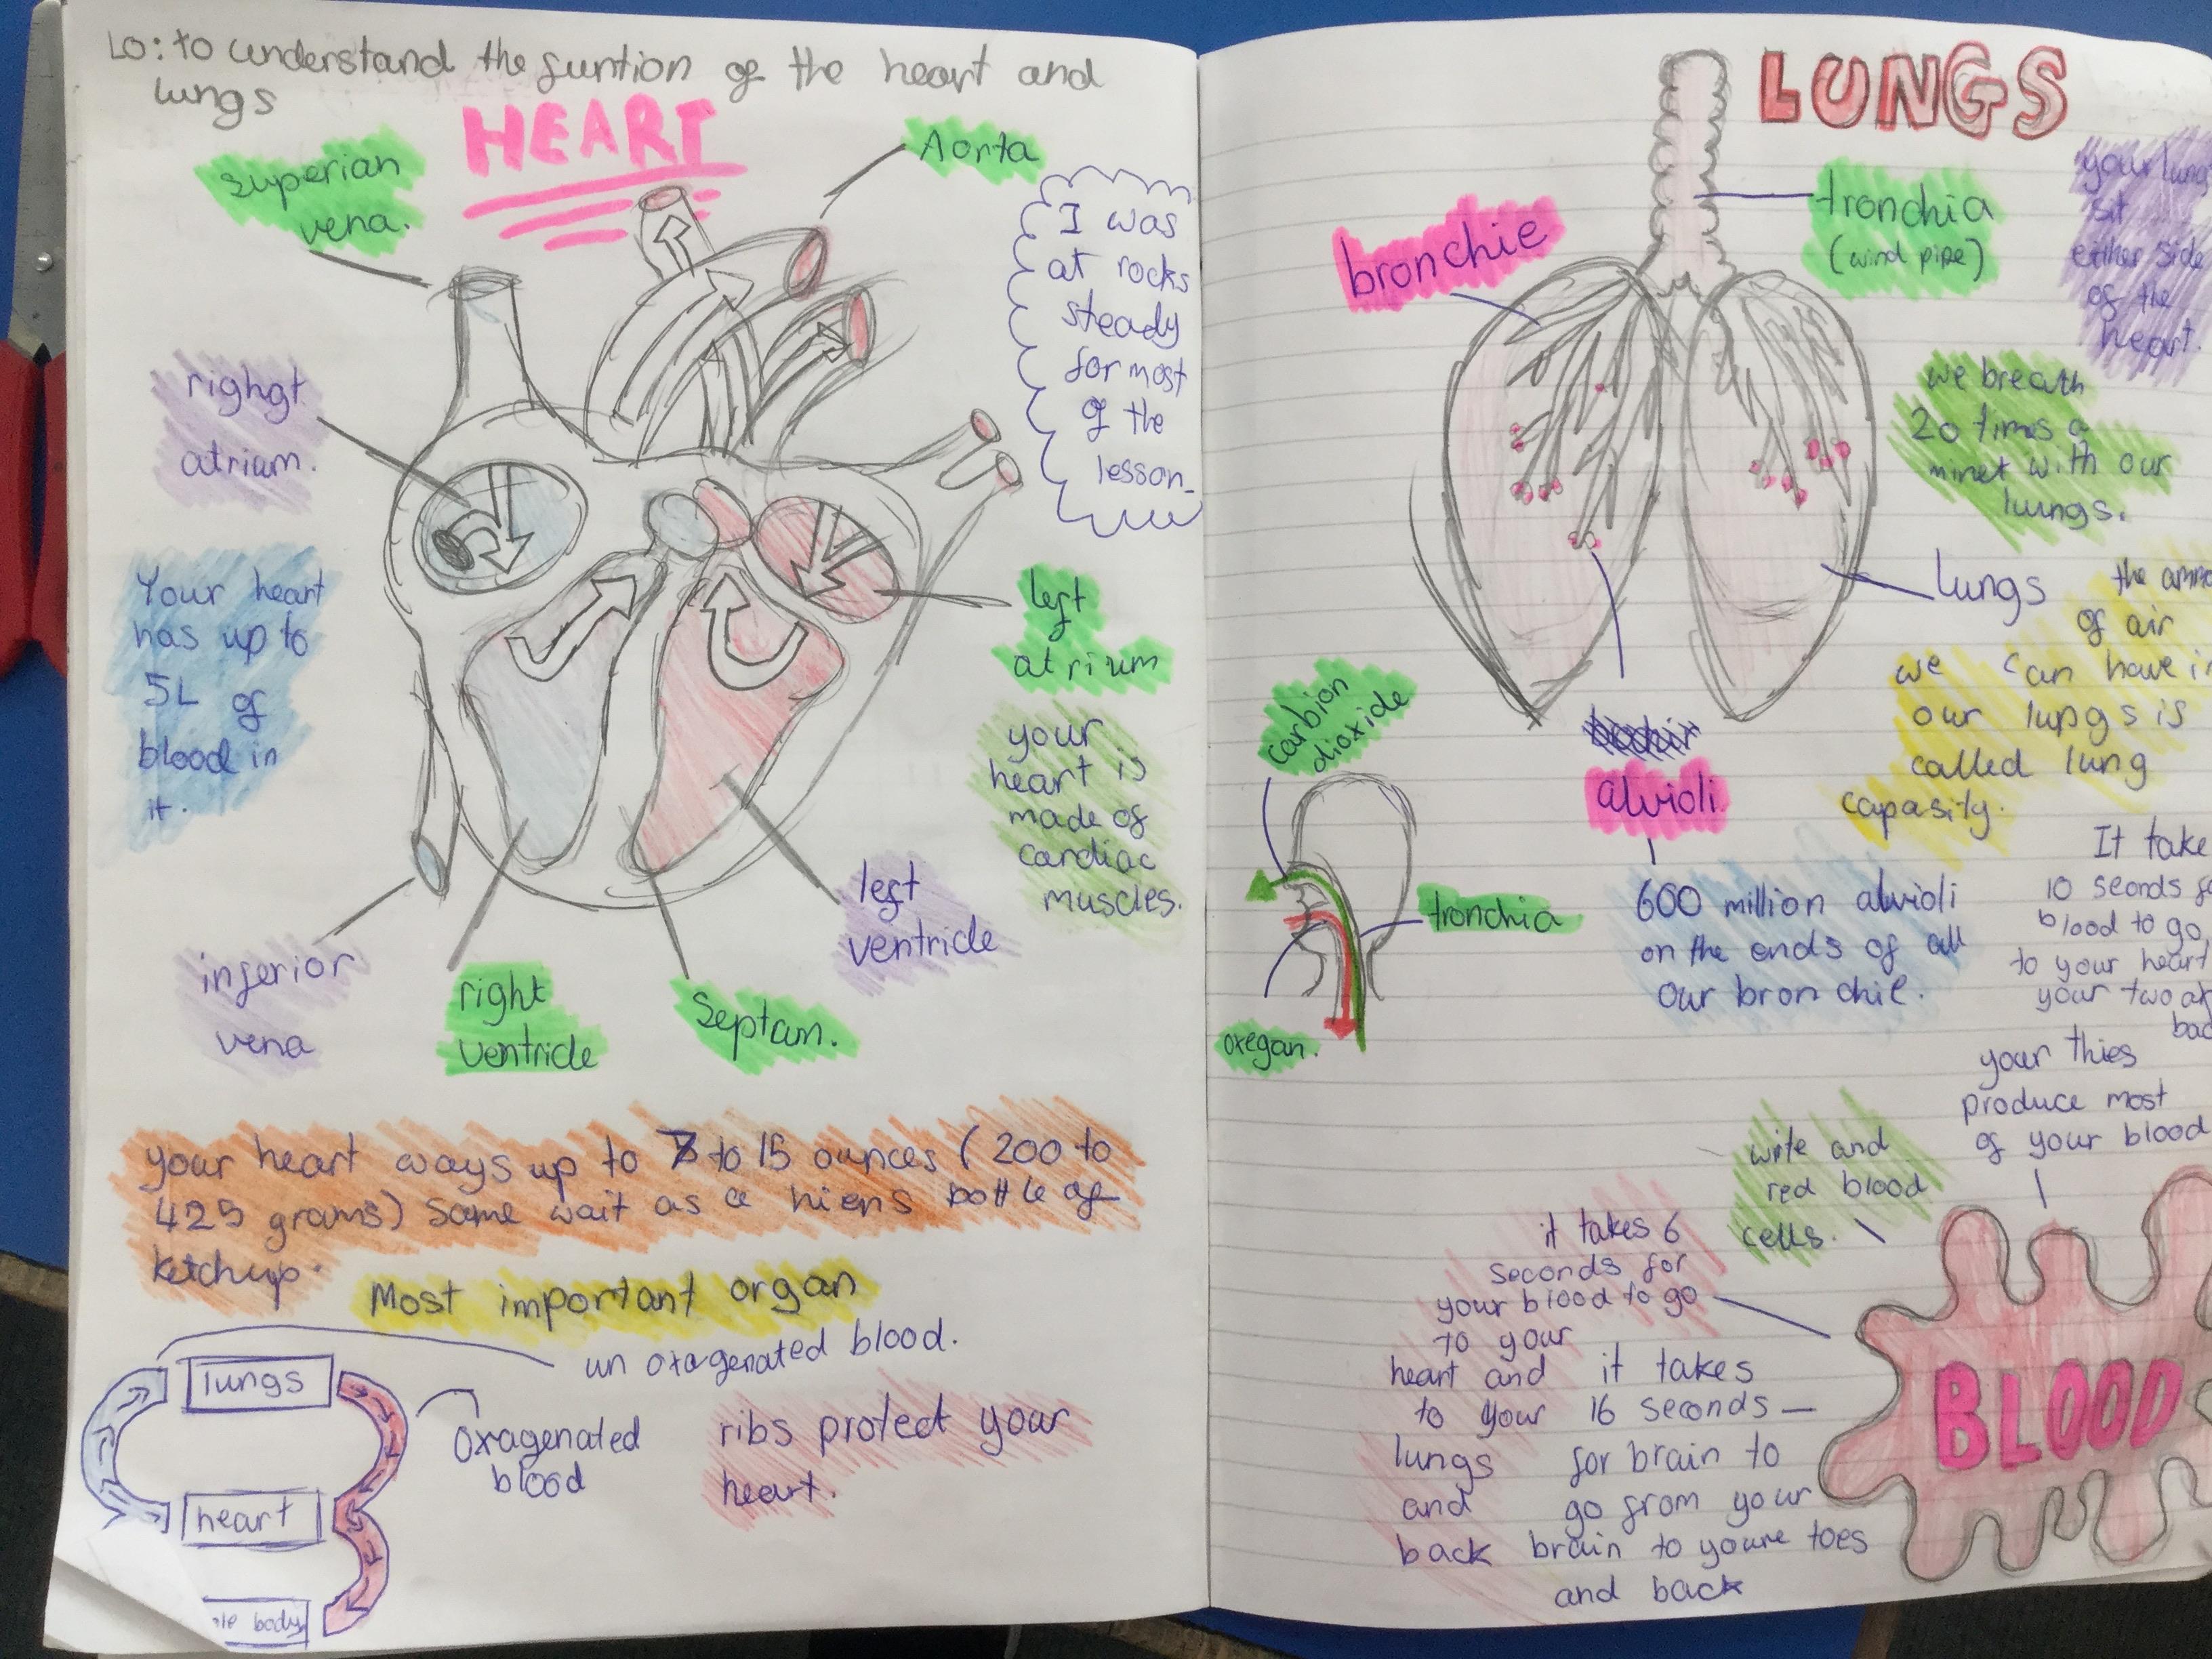 LO: to understand the funtion of the heart and
lungs
HEART
superian
vena.
Aorta
I was
at rocks
steady
for most
of the
lesson
righgt
atrium.
Your heart
has up to
5L of
blood in
it.
left
atrium
your
heart is
made of
cardiac
muscles.
left
ventricle
inferior
vena
right
ventricle
Septam.
your heart ways up to 7 to 15 ounces (200 to
425 grams) Same wait as a hiens bottle of
ketchup.
Most important organ
un oxagenated blood.
lungs
oxagenated
blood
heart
body
ribs protect your
heart.
LUNGS
tronchia
(wind pipe)
bronchie
your lungs
sit
either side
of the
heart.
we breath
20 times a
minet with our
lungs.
lungs
the
of air
we can have in
our lungs is
called lung
capasity.
carbion
dioxide
alvioli
tronchia
oxegan.
600 million alvioli
on the ends of all
our bronchie.
It take
10 seonds
blood to go
to your heart
your two
your thies
produce most
of your blood
wite and
red blood
cells.
it takes 6
seconds for
your blood to go
to your
heart and
to your
lungs
and
back
it takes
16 seconds
for brain to
go from your
brain to youre toes
and back
BLOOD